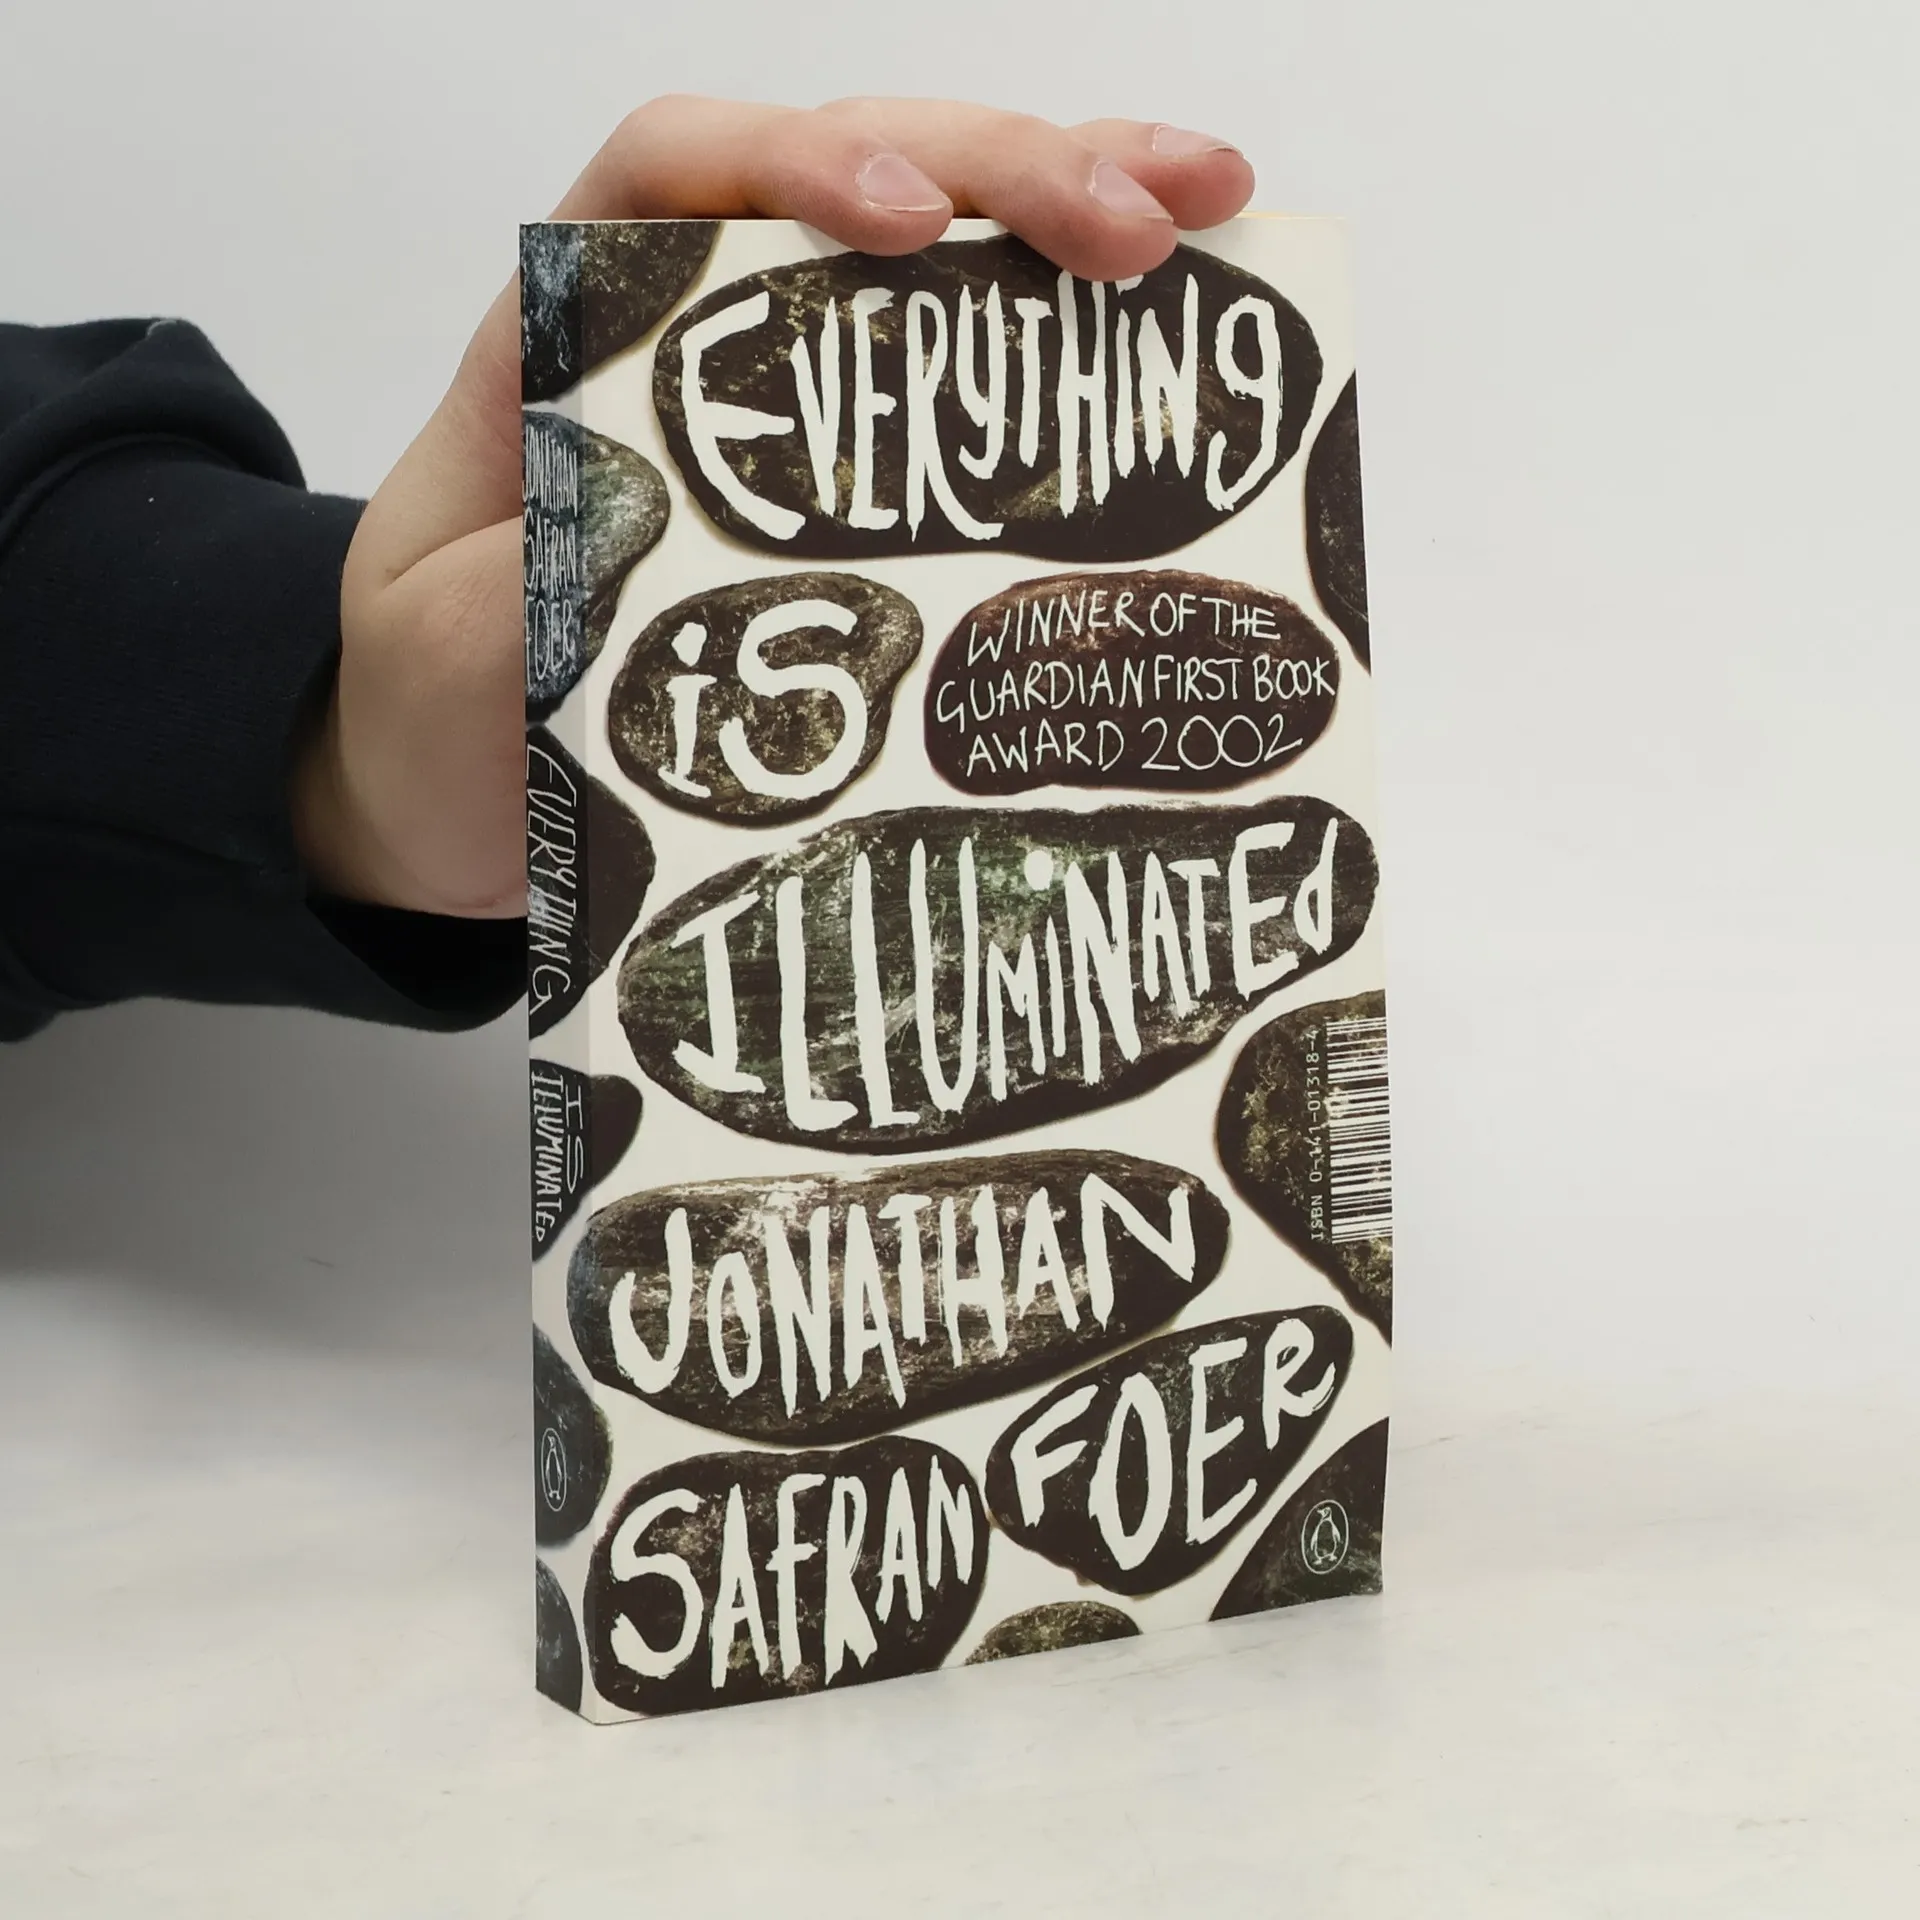 EVERYTHiNg
iS
WINNER OF THE
GUARDIAN FIRST BOOK
AWARD 2002
ILLUMiNATEd
JONATHAN
SAFRAN
FOER
ISBN 0-141-01318-4
JONATHAN
SAFRAN
FOER
EVERYTHING
IS
ILLUMINATEd